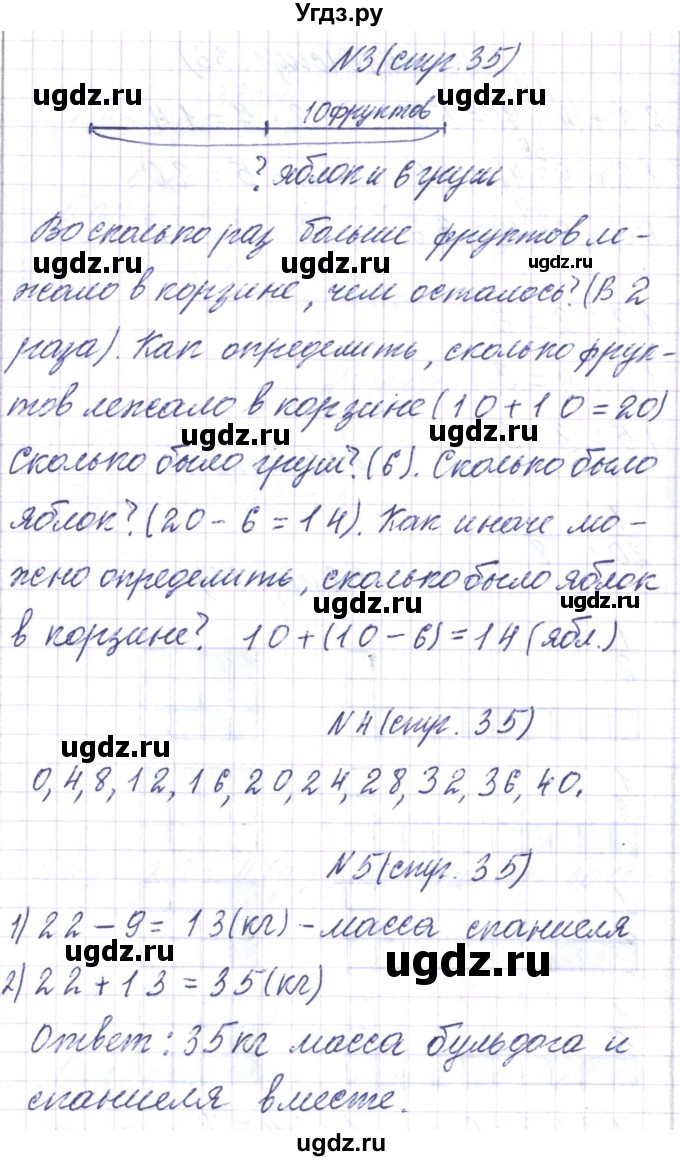 Угдз.ру
N3 (стр. 35)
ugdz.ru
10 фруктов
? яблок и 6 груш
ugdz.ru
Во сколько раз больше фруктов ле-
ugdz.ru ugdz.ru ugdz.ru
жало в корзине, чем осталось? (В 2
раза). Как определить, сколько фрук-
ugdz.ru
тов лежало в корзине (10+10=20)
ugdz.ru ugdz.ru
Сколько было груш? (6). Сколько было
яблок? (20-6=14). Как иначе мо-
жно определить, сколько было яблок
ugdz.ru ugdz.ru
в корзине? 10+(10-6)=14 (ябл.)
N4 (стр. 35)
ugdz.ru
0, 4, 8, 12, 16, 20, 24, 28, 32, 36, 40.
ugdz.ru
N5 (стр. 35)
1) 22-9=13(кг) - масса спаниеля
ugdz.ru ugdz.ru
2) 22+13=35(кг)
Ответ: 35 кг масса бульдога и
ugdz.ru
спаниеля вместе.
ugdz.ru